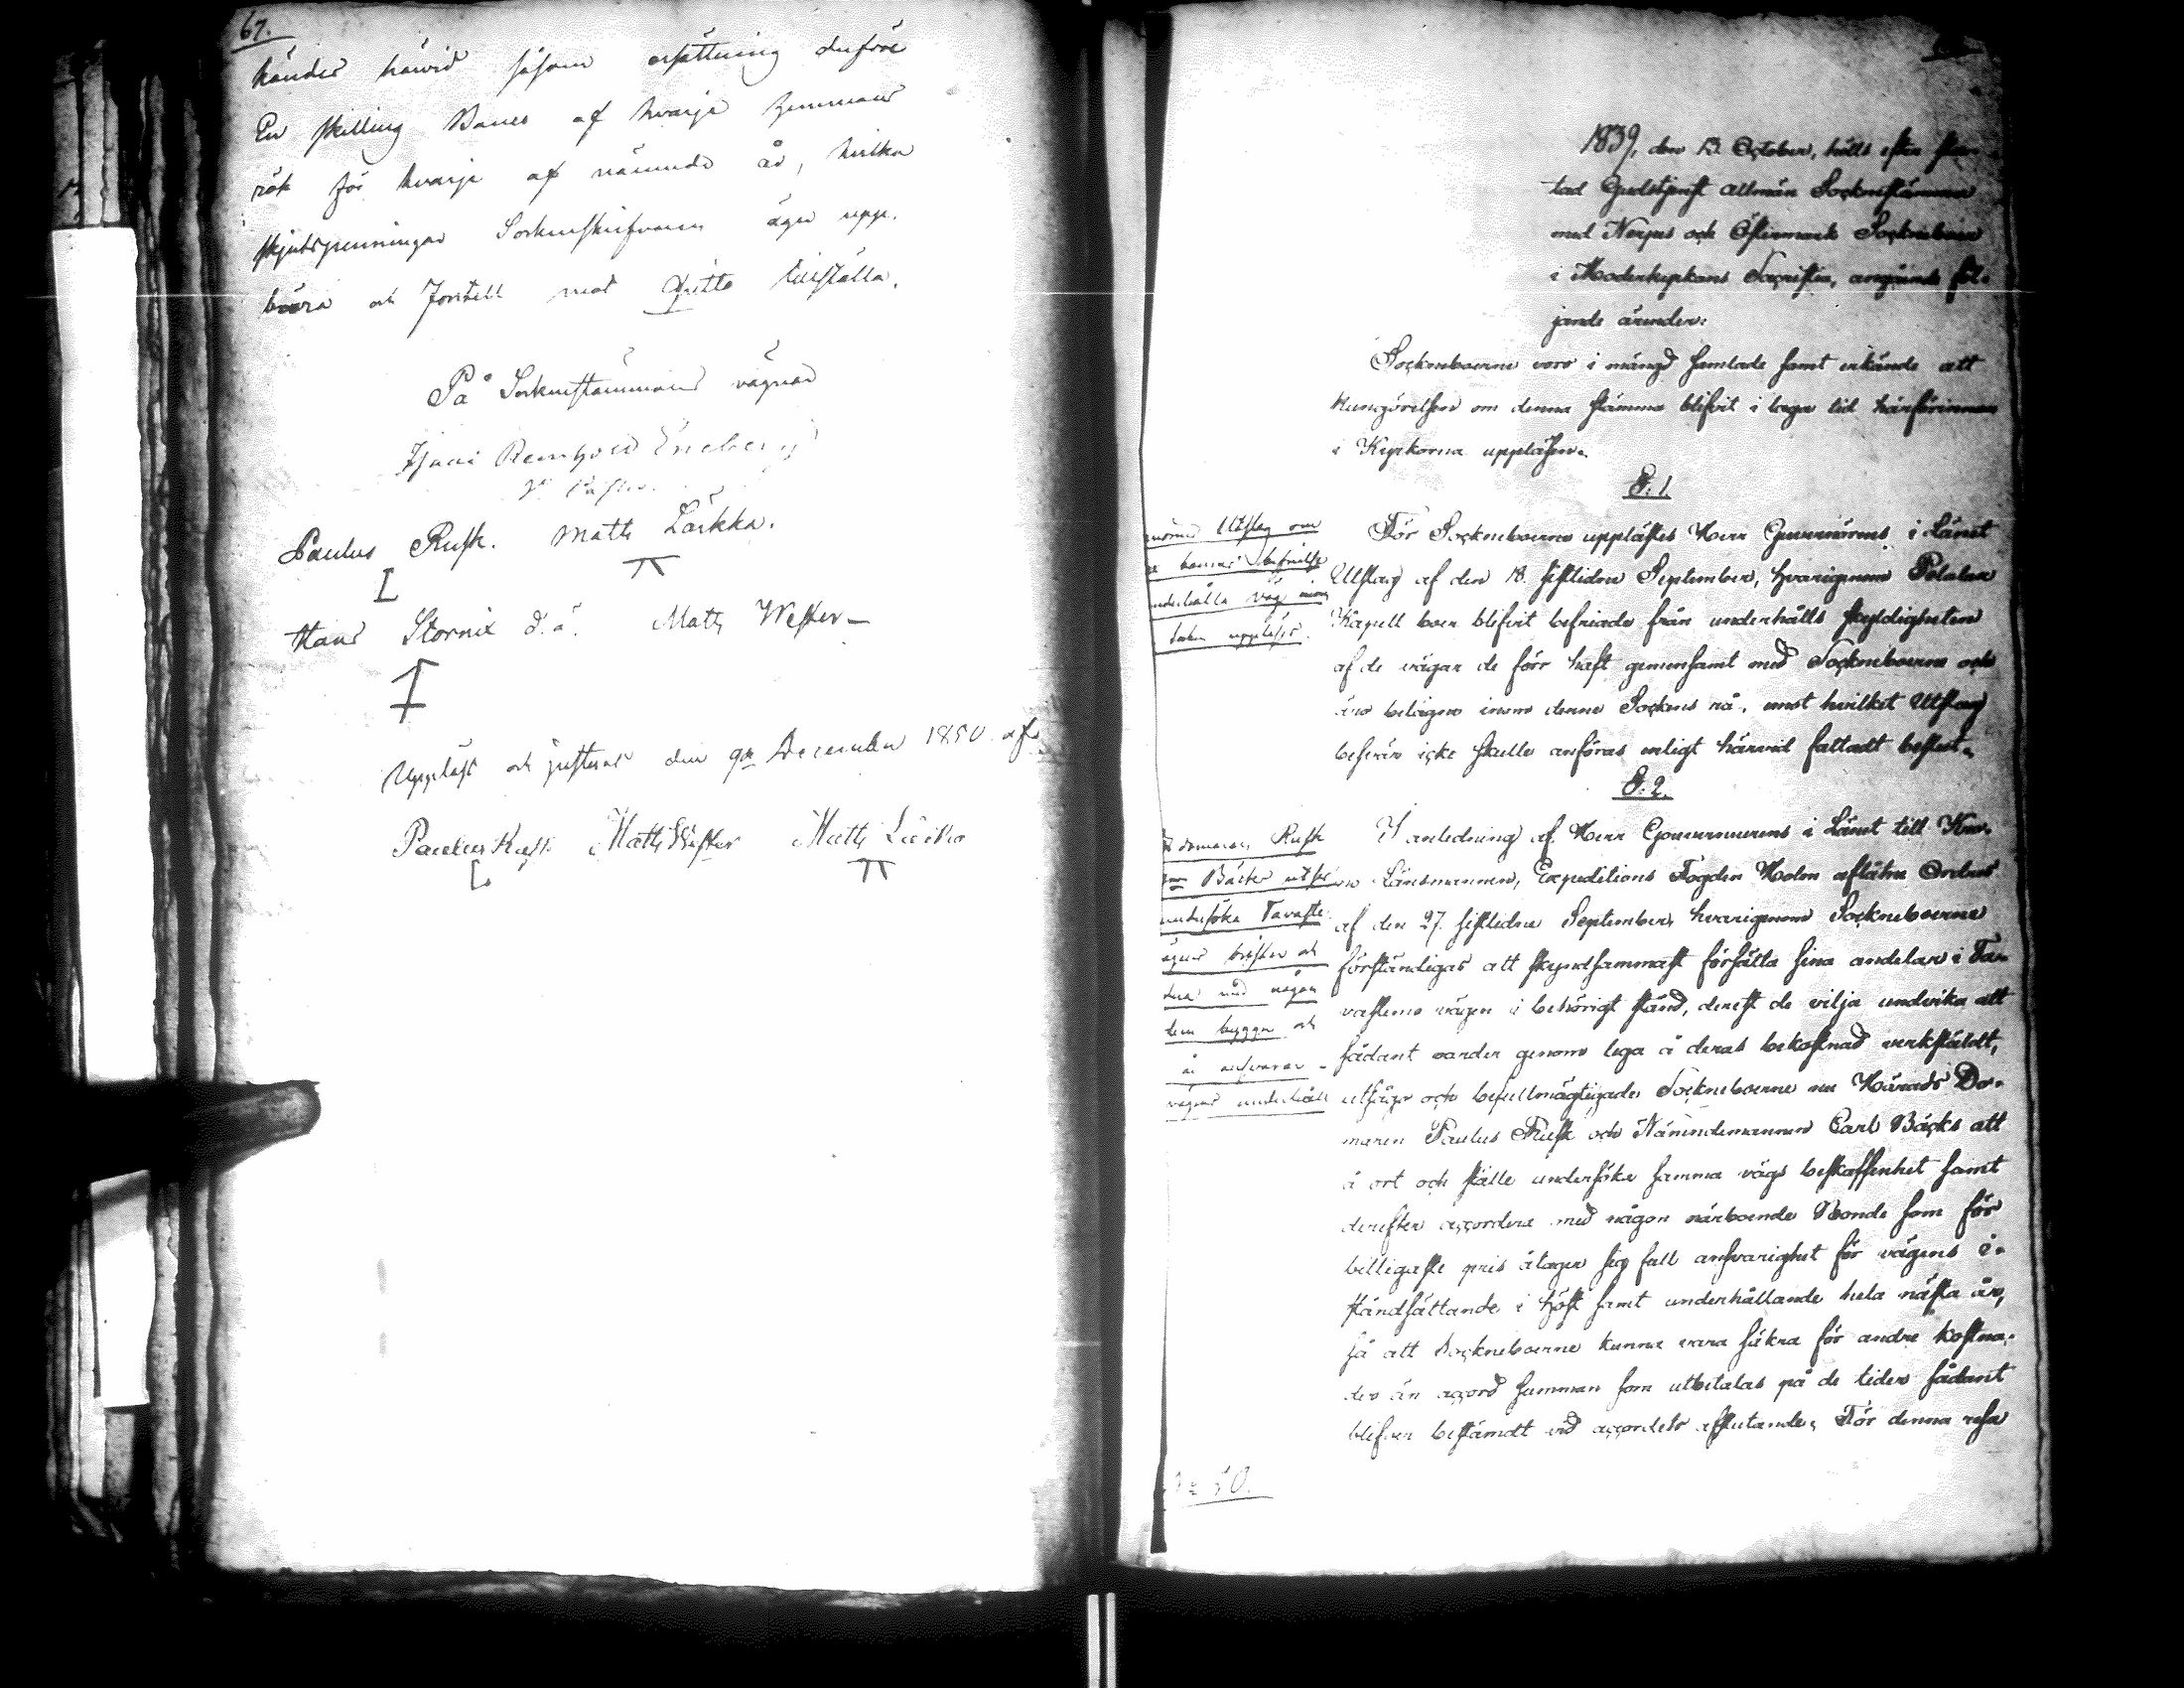 67.
händer härvid såsom ersättning derföre
En skilling Banco af hvarje hemmans
rök för hvarje af nämnde år, hvilka
skjutspenningar Sockenskrifvaren äger upp-
bära och Jontell mot qvitto tillställa.
På Sockenstämmans vägnar
Reinhold Eneberg
Paulus Rusk. Matts Lärkka.
Hans Stornix d.ä. Matts Wester
Uppläst och justerat den 9de December 1850 af
Paulus Rusk Matts Wester Matts Lärka
1839, den 13 October, hölls efter slu-
tad Gudstjenst allmän Sockenstämma
med Nerpes och Östermark Sockneboer
i Moderkyrkans Sacristia, angående föl-
jande ärender:
Sockneboerne voro i mängd samlade samt erkände att
kungörelsen om denna stämma blifvit i laga tid härförinnan
i Kyrkorna uppläsen.
§. 1.
Utslag om
befrielse
underhålla väg inom
uppläses.
För Sockneboerne upplästes Herr Guvernörens i Länet
Utslag af den 18. sistlidne September, hvarigenom
Kapell boer blifvit befriade från underhålls skyldigheten
af de vägar de förr haft gemensamt med Sockneboerne och
äro belägne inom denne Sockens rå, emot hvilket Utslag
besvär icke skulle anföras enligt härvid fattadt beslut.
§. 2.
domaren Rusk
Bäcks utse
undersöka Tavaste
vägens brister och
med någon
dem bygga och
ansvara
vägens underhåll
I anledning af Herr Gouverneurens i Länet till Kro-
no Länsmannen, Expeditions Fogden Holm aflåtne Ordres
af den 27. sistlidne September, hvarigenom Sockneboerne
förständigas att skyndsammast försätta sina andelar i Ta-
vastemo vägen i behörigt stånd, derest de vilja undvika att
sådant varder genom lega å deras bekostnad verkstäldt,
utsågo och befullmägtigade Sockneboerne nu Härads Do-
maren Paulus Rusk och Nämndemannen Carl Bäcks att
å ort och ställe undersöka samma vägs beskaffenhet samt
derefter accordera med någon närboende Bonde som för
billigaste pris åtager sig full ansvarighet för vägens i-
ståndsättande i höst samt underhållande hela nästa år,
så att Sockneboerne kunna vara säkra för andre kostna-
der än accord summan som utbetalas på de tider sådant
blifver bestämdt vid accordets afslutande. För denna resa